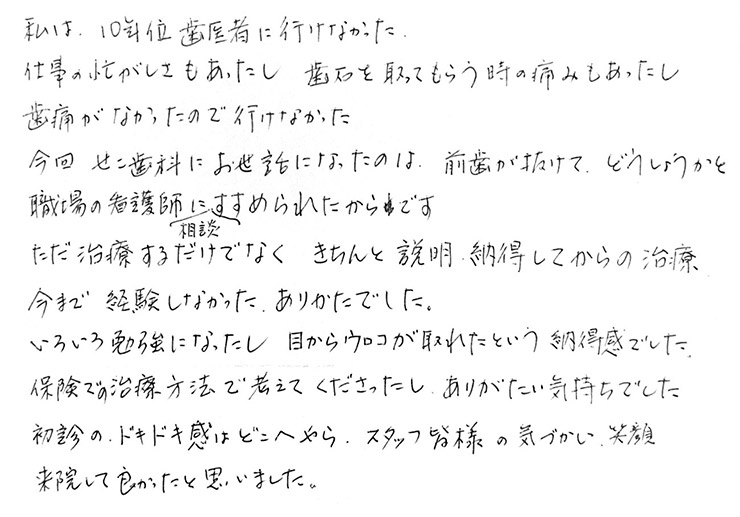 私は、10年位歯医者に行けなかった.
仕事の忙がしさもあったし 歯石を取ってもらう時の痛みもあったし
歯痛がなかったので行けなかった
今回 せこ歯科にお世話になったのは、前歯が抜けて、どうしょうかと
職場の看護師にすすめられたからです
相談
ただ治療するだけでなく きちんと説明、納得してからの治療
今まで経験しなかった、ありかたでした。
いろいろ勉強になったし 目からウロコが取れたという納得感でした.
保険での治療方法で考えてくださったし、ありがたい気持ちでした
初診の、ドキドキ感はどこへやら、スタッフ皆様の気づかい、笑顔
来院して良かったと思いました。